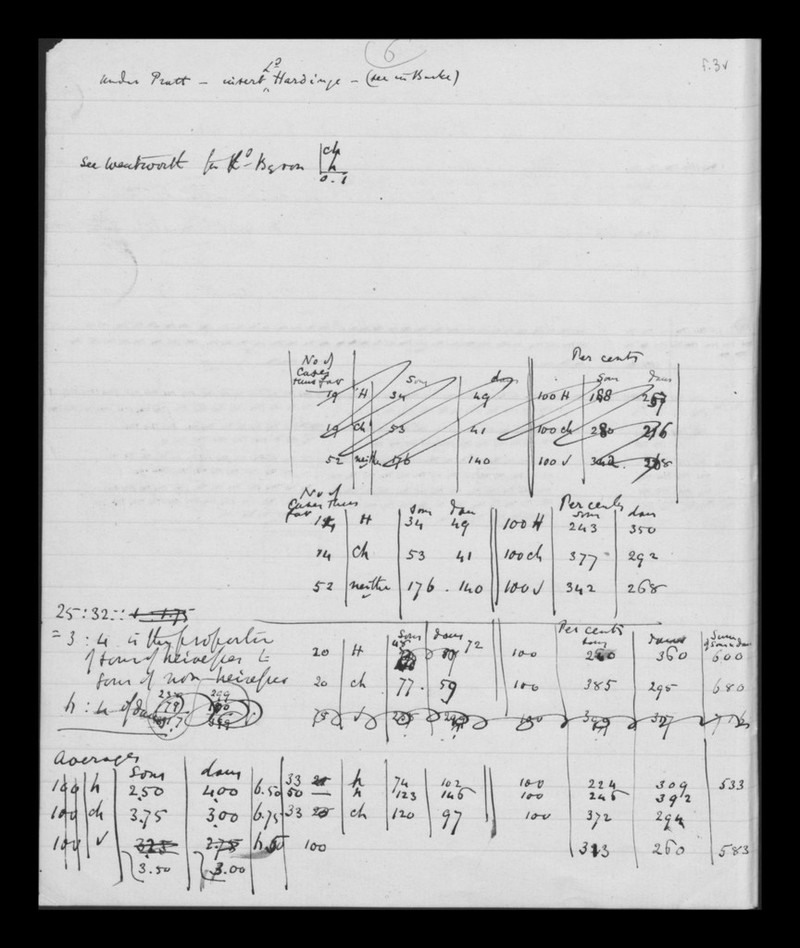 6
f.3v
under Pratt - insert Ld Hardinge - (see in Burke)
see Wentworth for Ld Byron | ch
h
0.1
Per cents
No of
Cases
thus far | sons | daus | sons | daus
19 | H | 34 | 49 | 100 H | 188
19 | ch | 53 | 41 | 100 ch | 280 | 216
52 | neither | 176 | 140 | 100 v | 342 | 268
No of
Cases thus
far | sons | daus | Per cents
sons | daus
14 | H | 34 | 49 | 100 H | 243 | 350
14 | ch | 53 | 41 | 100 ch | 377 | 292
52 | neither | 176 | 140 | 100 v | 342 | 268
25:32::
= 3:4 is the proportion
of sons of heiresses to
sons of non heiresses
h: 4 of daus
Per cents
sons | daus | sons | daus | Sum
of sons & daus
20 | H | 72 | 100 | 360 | 600
20 | ch | 77 | 59 | 100 | 385 | 295 | 680
Averages
sons | daus
100 | h | 2.50 | 4.00 | 6.50 | 33 | h | 74 | 102 | 100 | 224 | 309 | 533
50 | h | 123 | 146 | 100 | 246 | 392
100 | ch | 3.75 | 3.00 | 6.75 | 33 | ch | 120 | 97 | 100 | 372 | 294
100 | v | 325 | 2.75 | 100 | 313 | 260 | 583
3.50 | 3.00